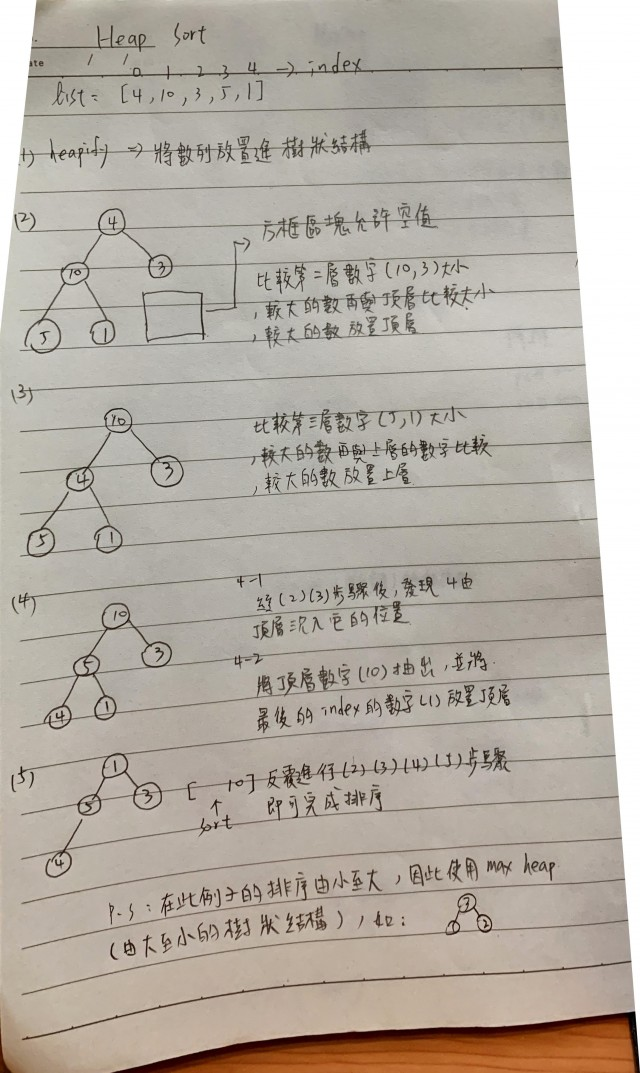 Heap Sort
ate / /
0 1 2 3 4 → index
list = [4,10,3,5,1]
1) heapify => 將數列放置進樹狀結構
(2)
4
10 3
5 1
方框區塊允許空值
比較第二層數字(10,3)大小
,較大的數再與頂層比較大小
,較大的數放置頂層
(3)
10
4 3
5 1
比較第三層數字(5,1)大小
,較大的數再與上層的數字比較
,較大的數放置上層
(4)
10
5 3
4 1
4-1
經(2)(3)步驟後,發現4由
頂層沉入它的位置
4-2
將頂層數字(10)抽出,並將
最後的index的數字(1)放置頂層
(5)
1
5 3
4
[ 10] 反覆進行(2)(3)(4)(5)步驟
↑ 即可完成排序
sort
P.S:在此例子的排序由小至大,因此使用 max heap
(由大至小的樹狀結構),如:
3
1 2